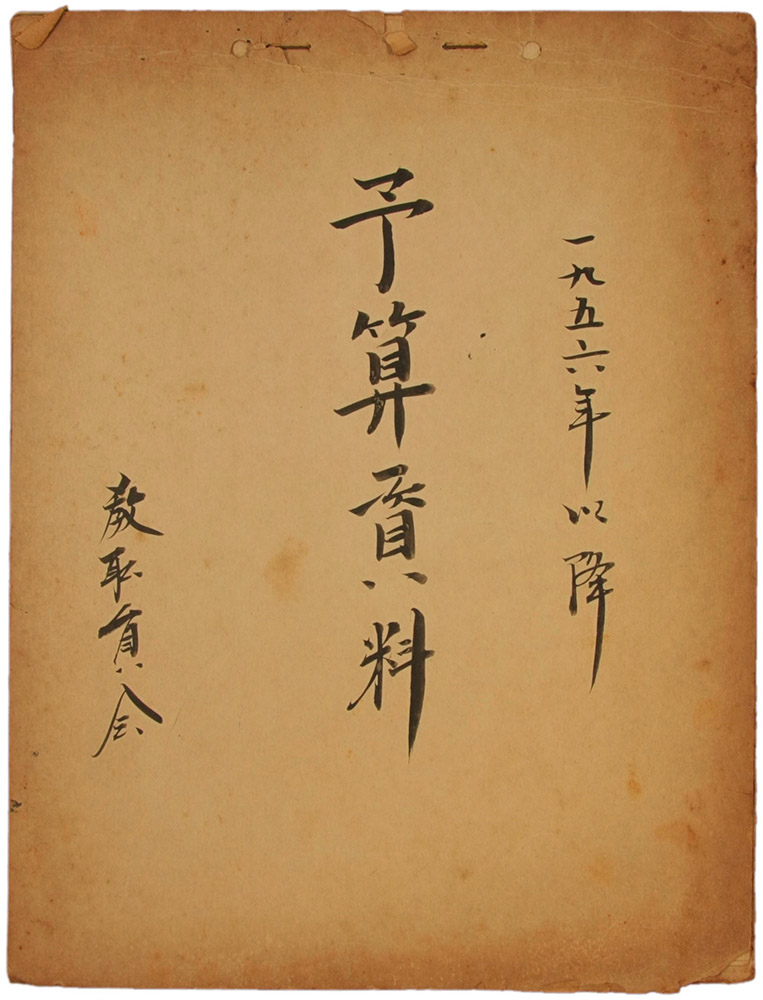 一九五六年以降
予算資料
教職員会